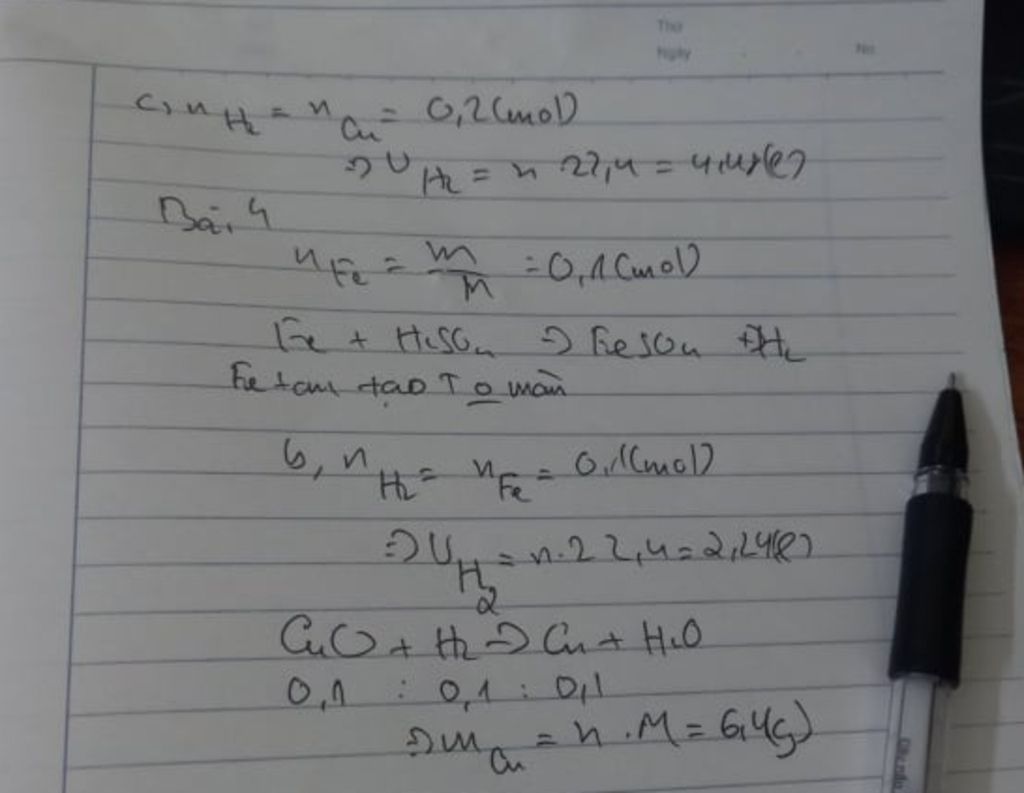 Thứ
Ngày No
c, n H2 = n Cu = 0,2(mol)
=> V H2 = n 22,4 = 4,48(l)
Bài 4
n Fe = m/M = 0,1(mol)
Fe + H2SO4 => FeSO4 + H2
Fe tan tạo T o màu
b, n H2 = n Fe = 0,1(mol)
=> V H2 = n.22,4 = 2,24(l)
CuO + H2 => Cu + H2O
0,1 : 0,1 : 0,1
=> m Cu = n . M = 6,4(g)